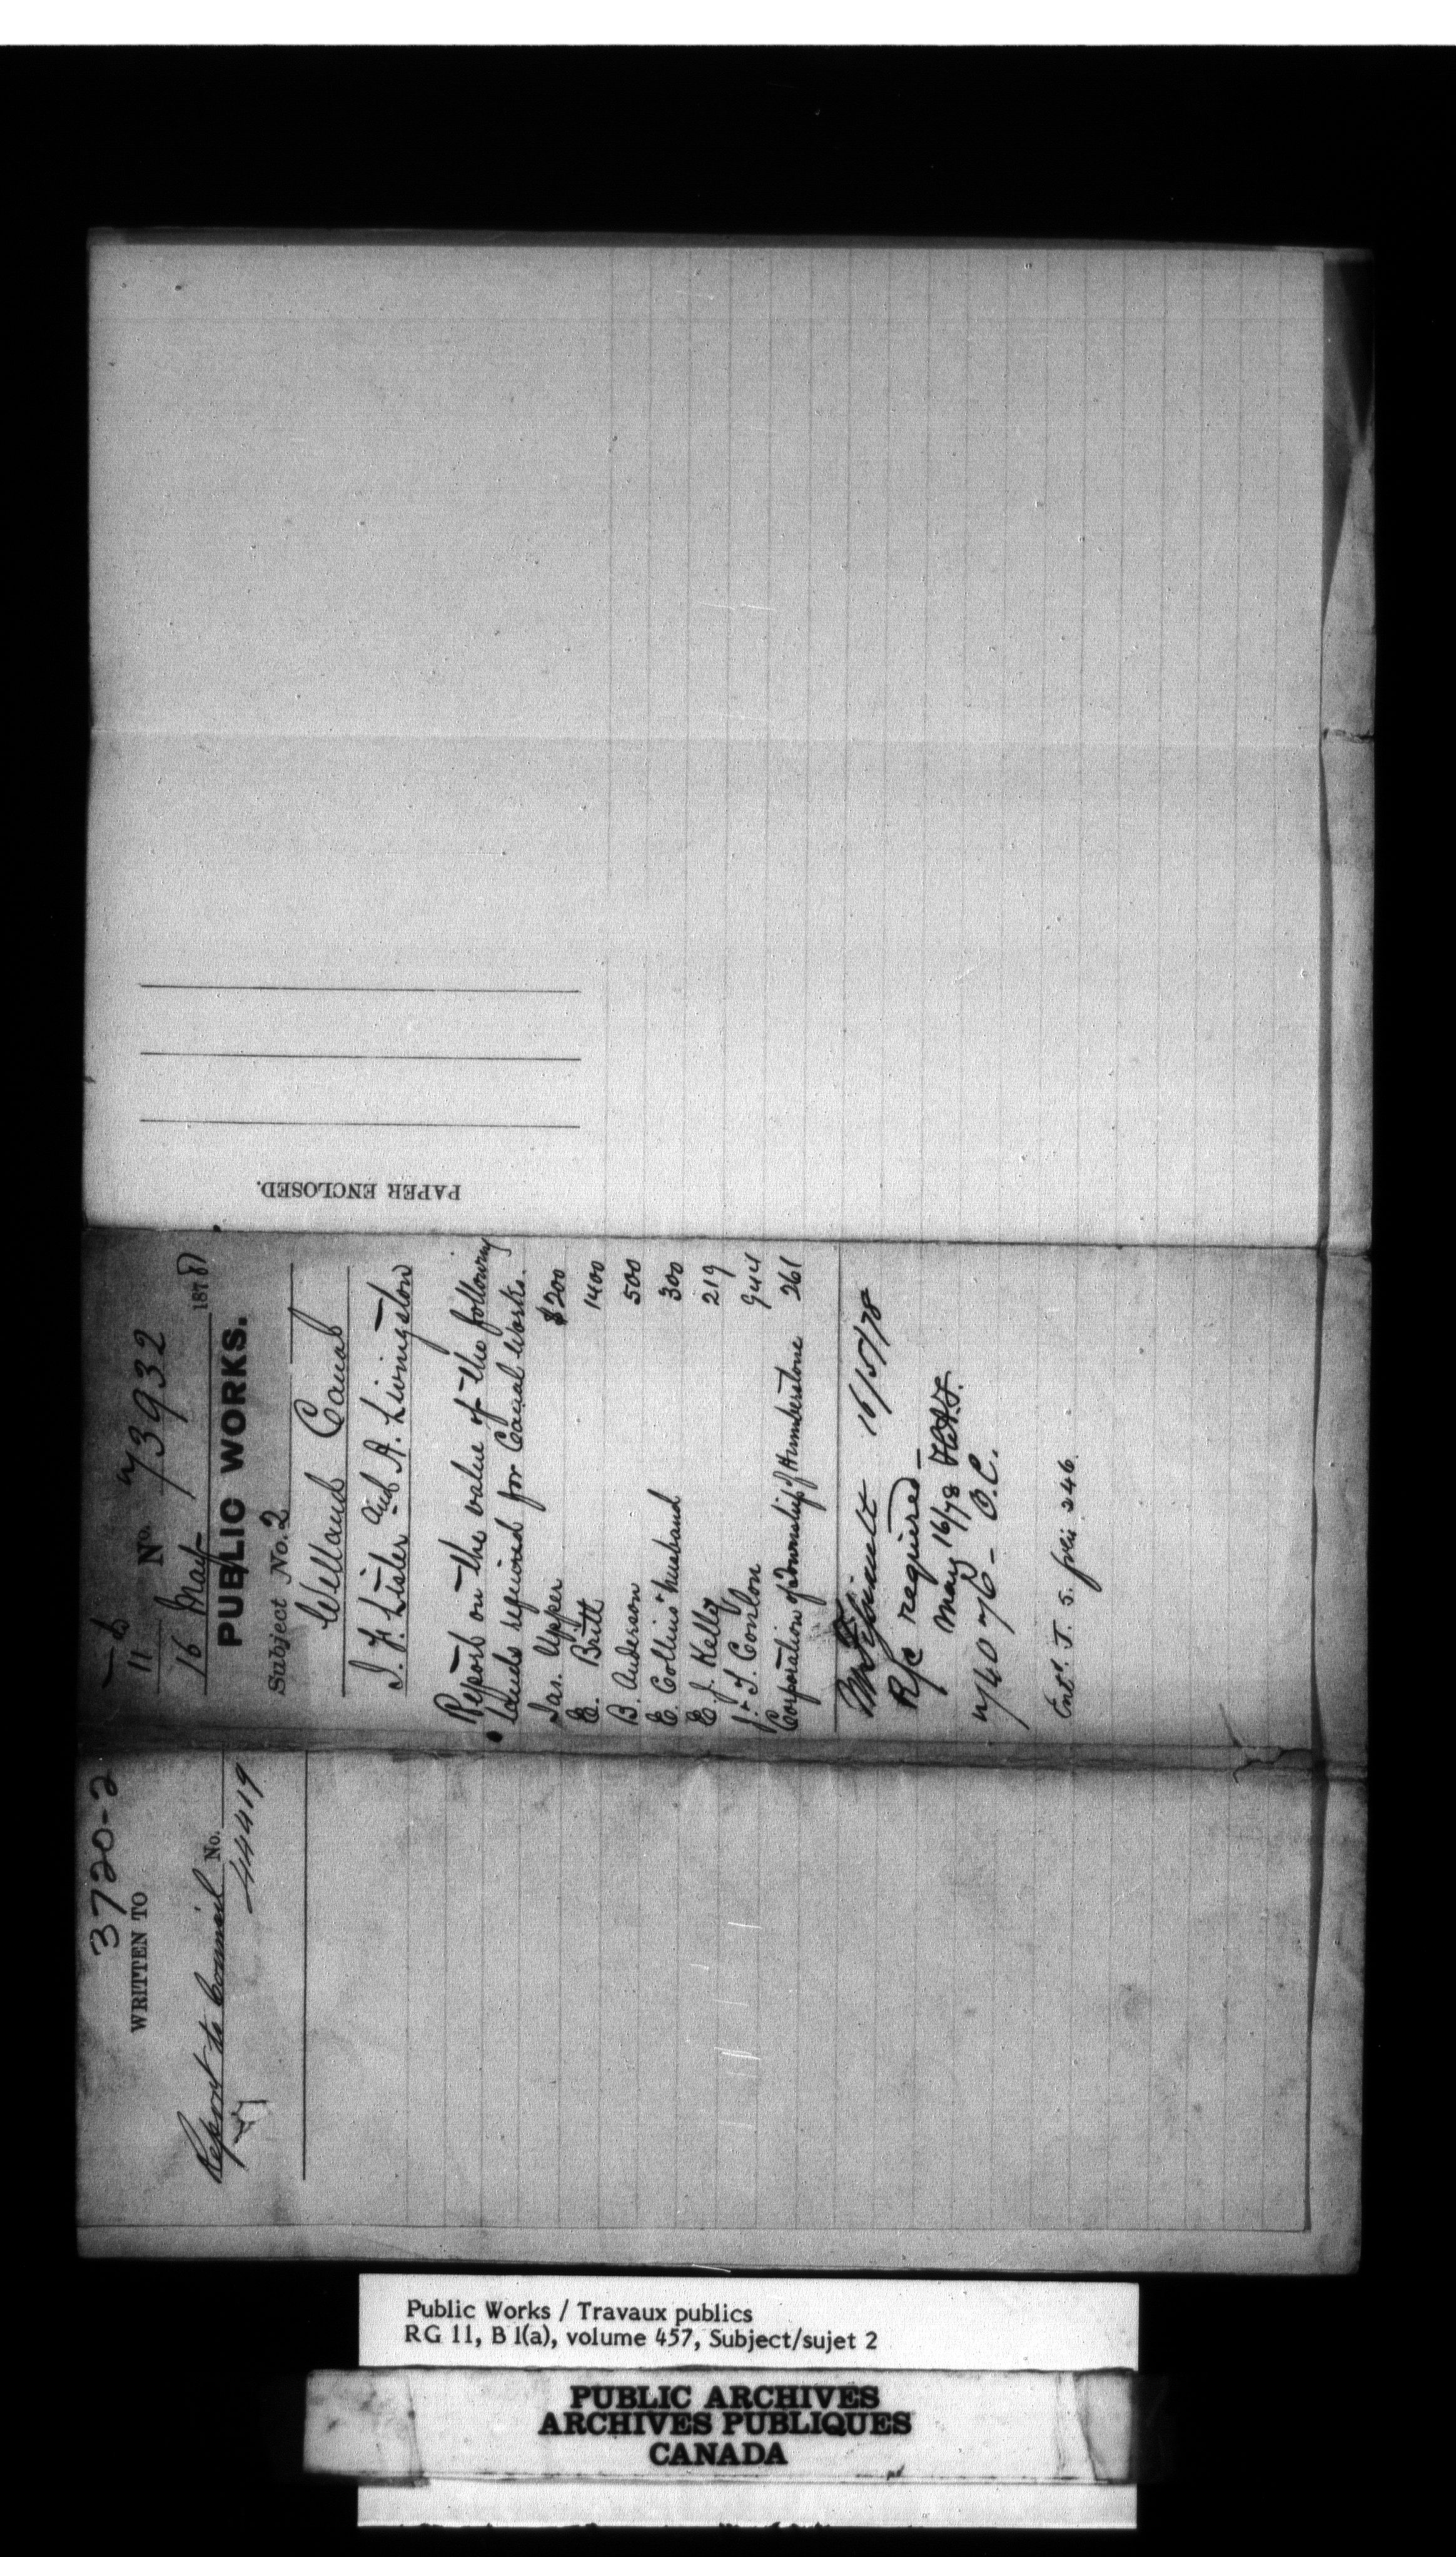 3720-2
WRITTEN TO
Report to Council No.
44419
11 No. 73932
16 May 1878
PUBLIC WORKS.
Subject No. 2
Welland Canal
I. F. Lister and A. Livingston
Report on the value of the following
lands required for Canal Works.
Jas. Upper $200
E. Britt 1400
B. Anderson 500
E. Collins & husband 300
E. J. Kelly 219
J. & T. Conlon 944
Corporation of Township of Humberstone 261
16/5/78
R/c required
May 16/78
O.C.
Ent'd. J. S. folio 246
PAPER ENCLOSED.
Public Works / Travaux publics
RG 11, B 1(a), volume 457, Subject/sujet 2
PUBLIC ARCHIVES
ARCHIVES PUBLIQUES
CANADA